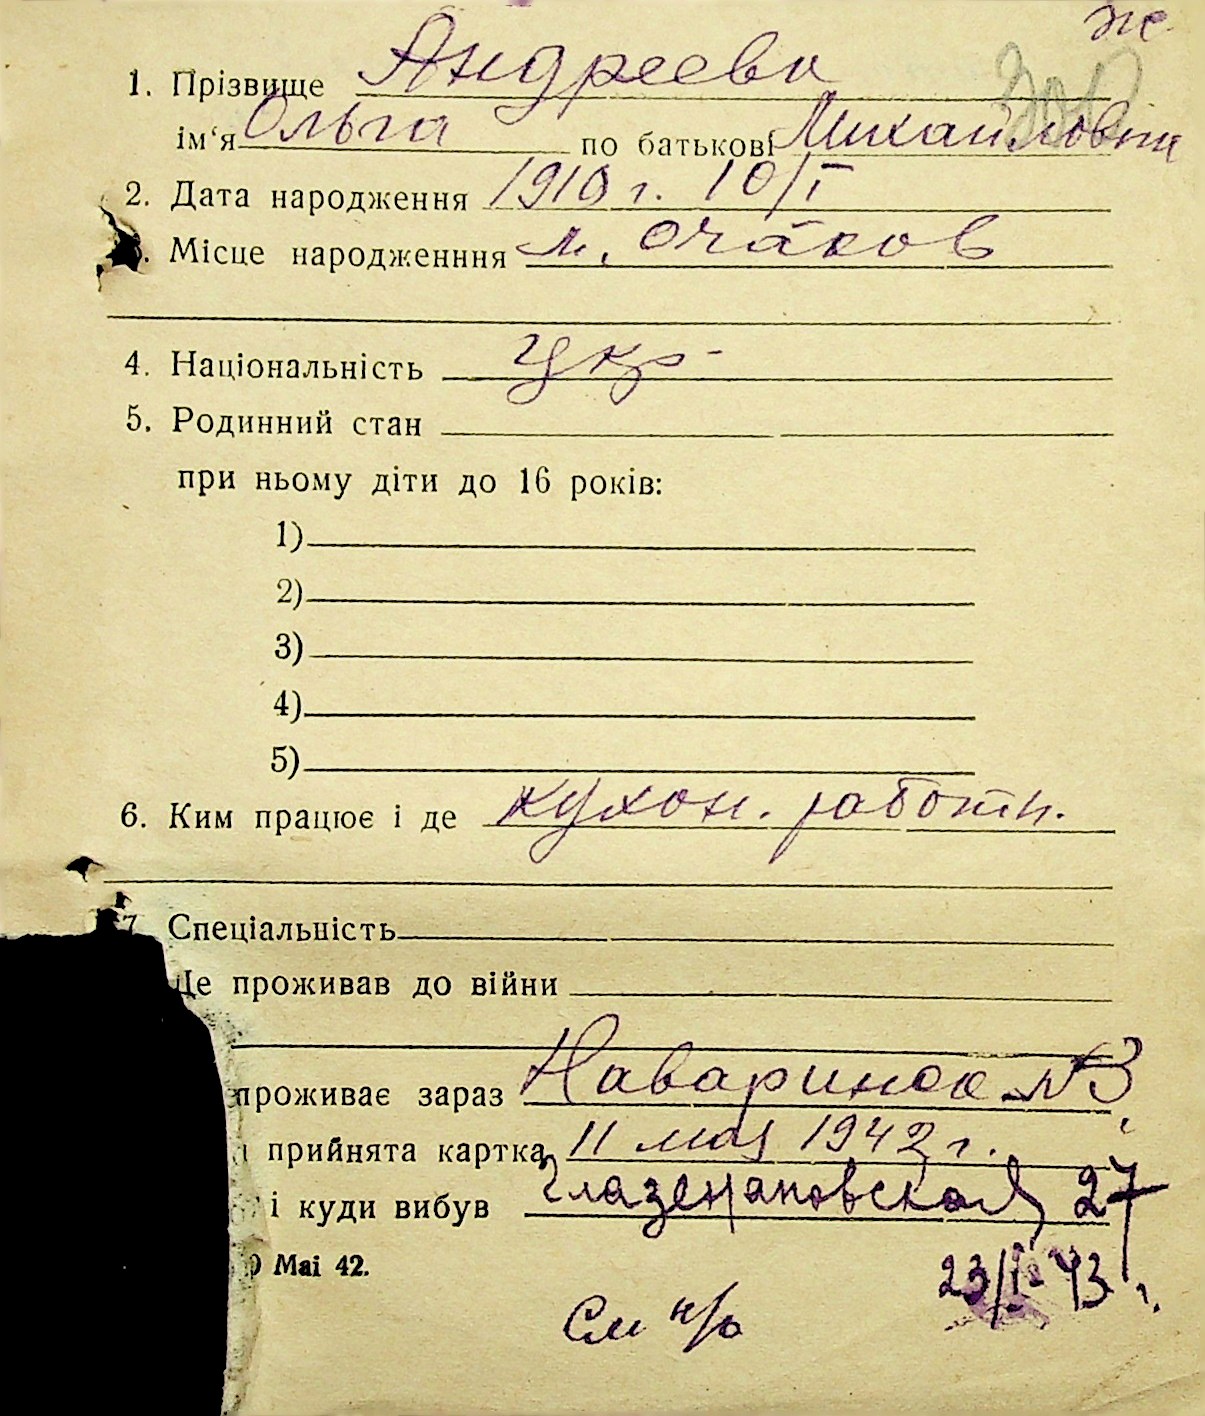 же.
1. Прізвище Андреева
ім‘я Ольга по батькові Михайловна
2. Дата народження 1910 г. 10/I
3. Місце народженння м. Очаков
4. Національність Укр-
5. Родинний стан
при ньому діти до 16 років:
1)
2)
3)
4)
5)
6. Ким працює і де кухон. работн.
7. Спеціальність
Де проживав до війни
проживає зараз Наваринск №3
прийнята картка 11 мая 1942 г.
і куди вибув Глазенаповская 27
Mai 42. 23/I-43 г.
См н/о